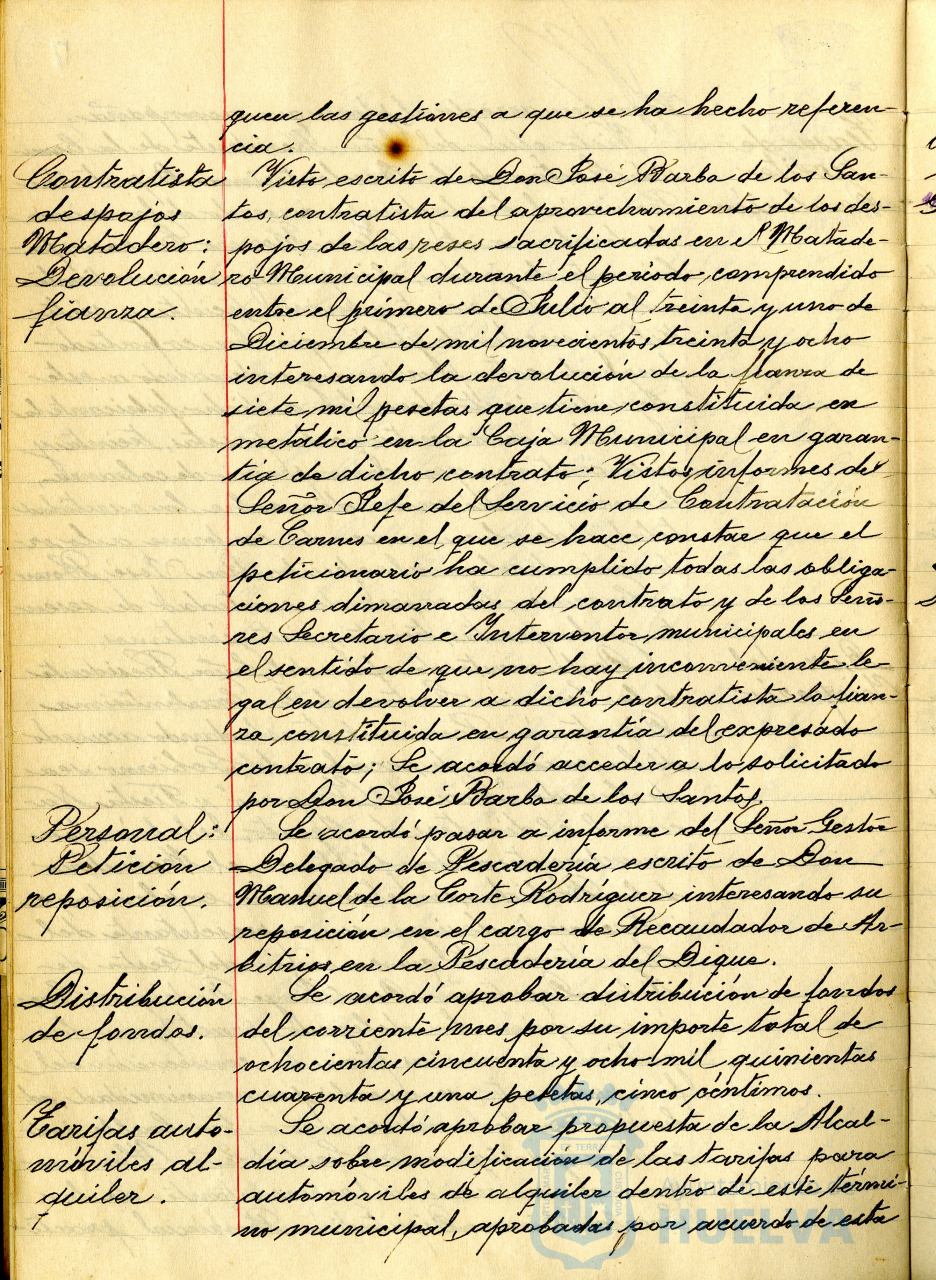 guen las gestiones a que se ha hecho referen-
cia.
Contratista
despojos
Matadero:
Devolución
fianza.
Visto escrito de Don José Barba de los San-
tos, contratista del aprovechamiento de los des-
pojos de las reses sacrificadas en el Matade-
ro Municipal durante el período comprendido
entre el primero de Julio al treinta y uno de
Diciembre de mil novecientos treinta y ocho
interesando la devolución de la fianza de
siete mil pesetas que tiene constituida en
metálico en la Caja Municipal en garan-
tía de dicho contrato; Vistos informes del
Señor Jefe del Servicio de Contratación
de Carnes en el que se hace constar que el
peticionario ha cumplido todas las obliga-
ciones dimanadas del contrato y de los Seño-
res Secretario e Interventor municipales en
el sentido de que no hay inconveniente le-
gal en devolver a dicho contratista la fian-
za constituida en garantía del expresado
contrato; Se acordó acceder a lo solicitado
por Don José Barba de los Santos.
Personal:
Petición
reposición.
Se acordó pasar a informe del Señor Gestor
Delegado de Pescadería escrito de Don
Manuel de la Corte Rodríguez interesando su
reposición en el cargo de Recaudador de Ar-
bitrios en la Pescadería del Dique.
Distribución
de fondos.
Se acordó aprobar distribución de fondos
del corriente mes por su importe total de
ochocientas cincuenta y ocho mil quinientas
cuarenta y una pesetas, cinco céntimos.
Tarifas auto-
móviles al-
quiler.
Se acordó aprobar propuesta de la Alcal-
día sobre modificación de las tarifas para
automóviles de alquiler dentro de este térmi-
no municipal, aprobadas por acuerdo de esta
HUELVA